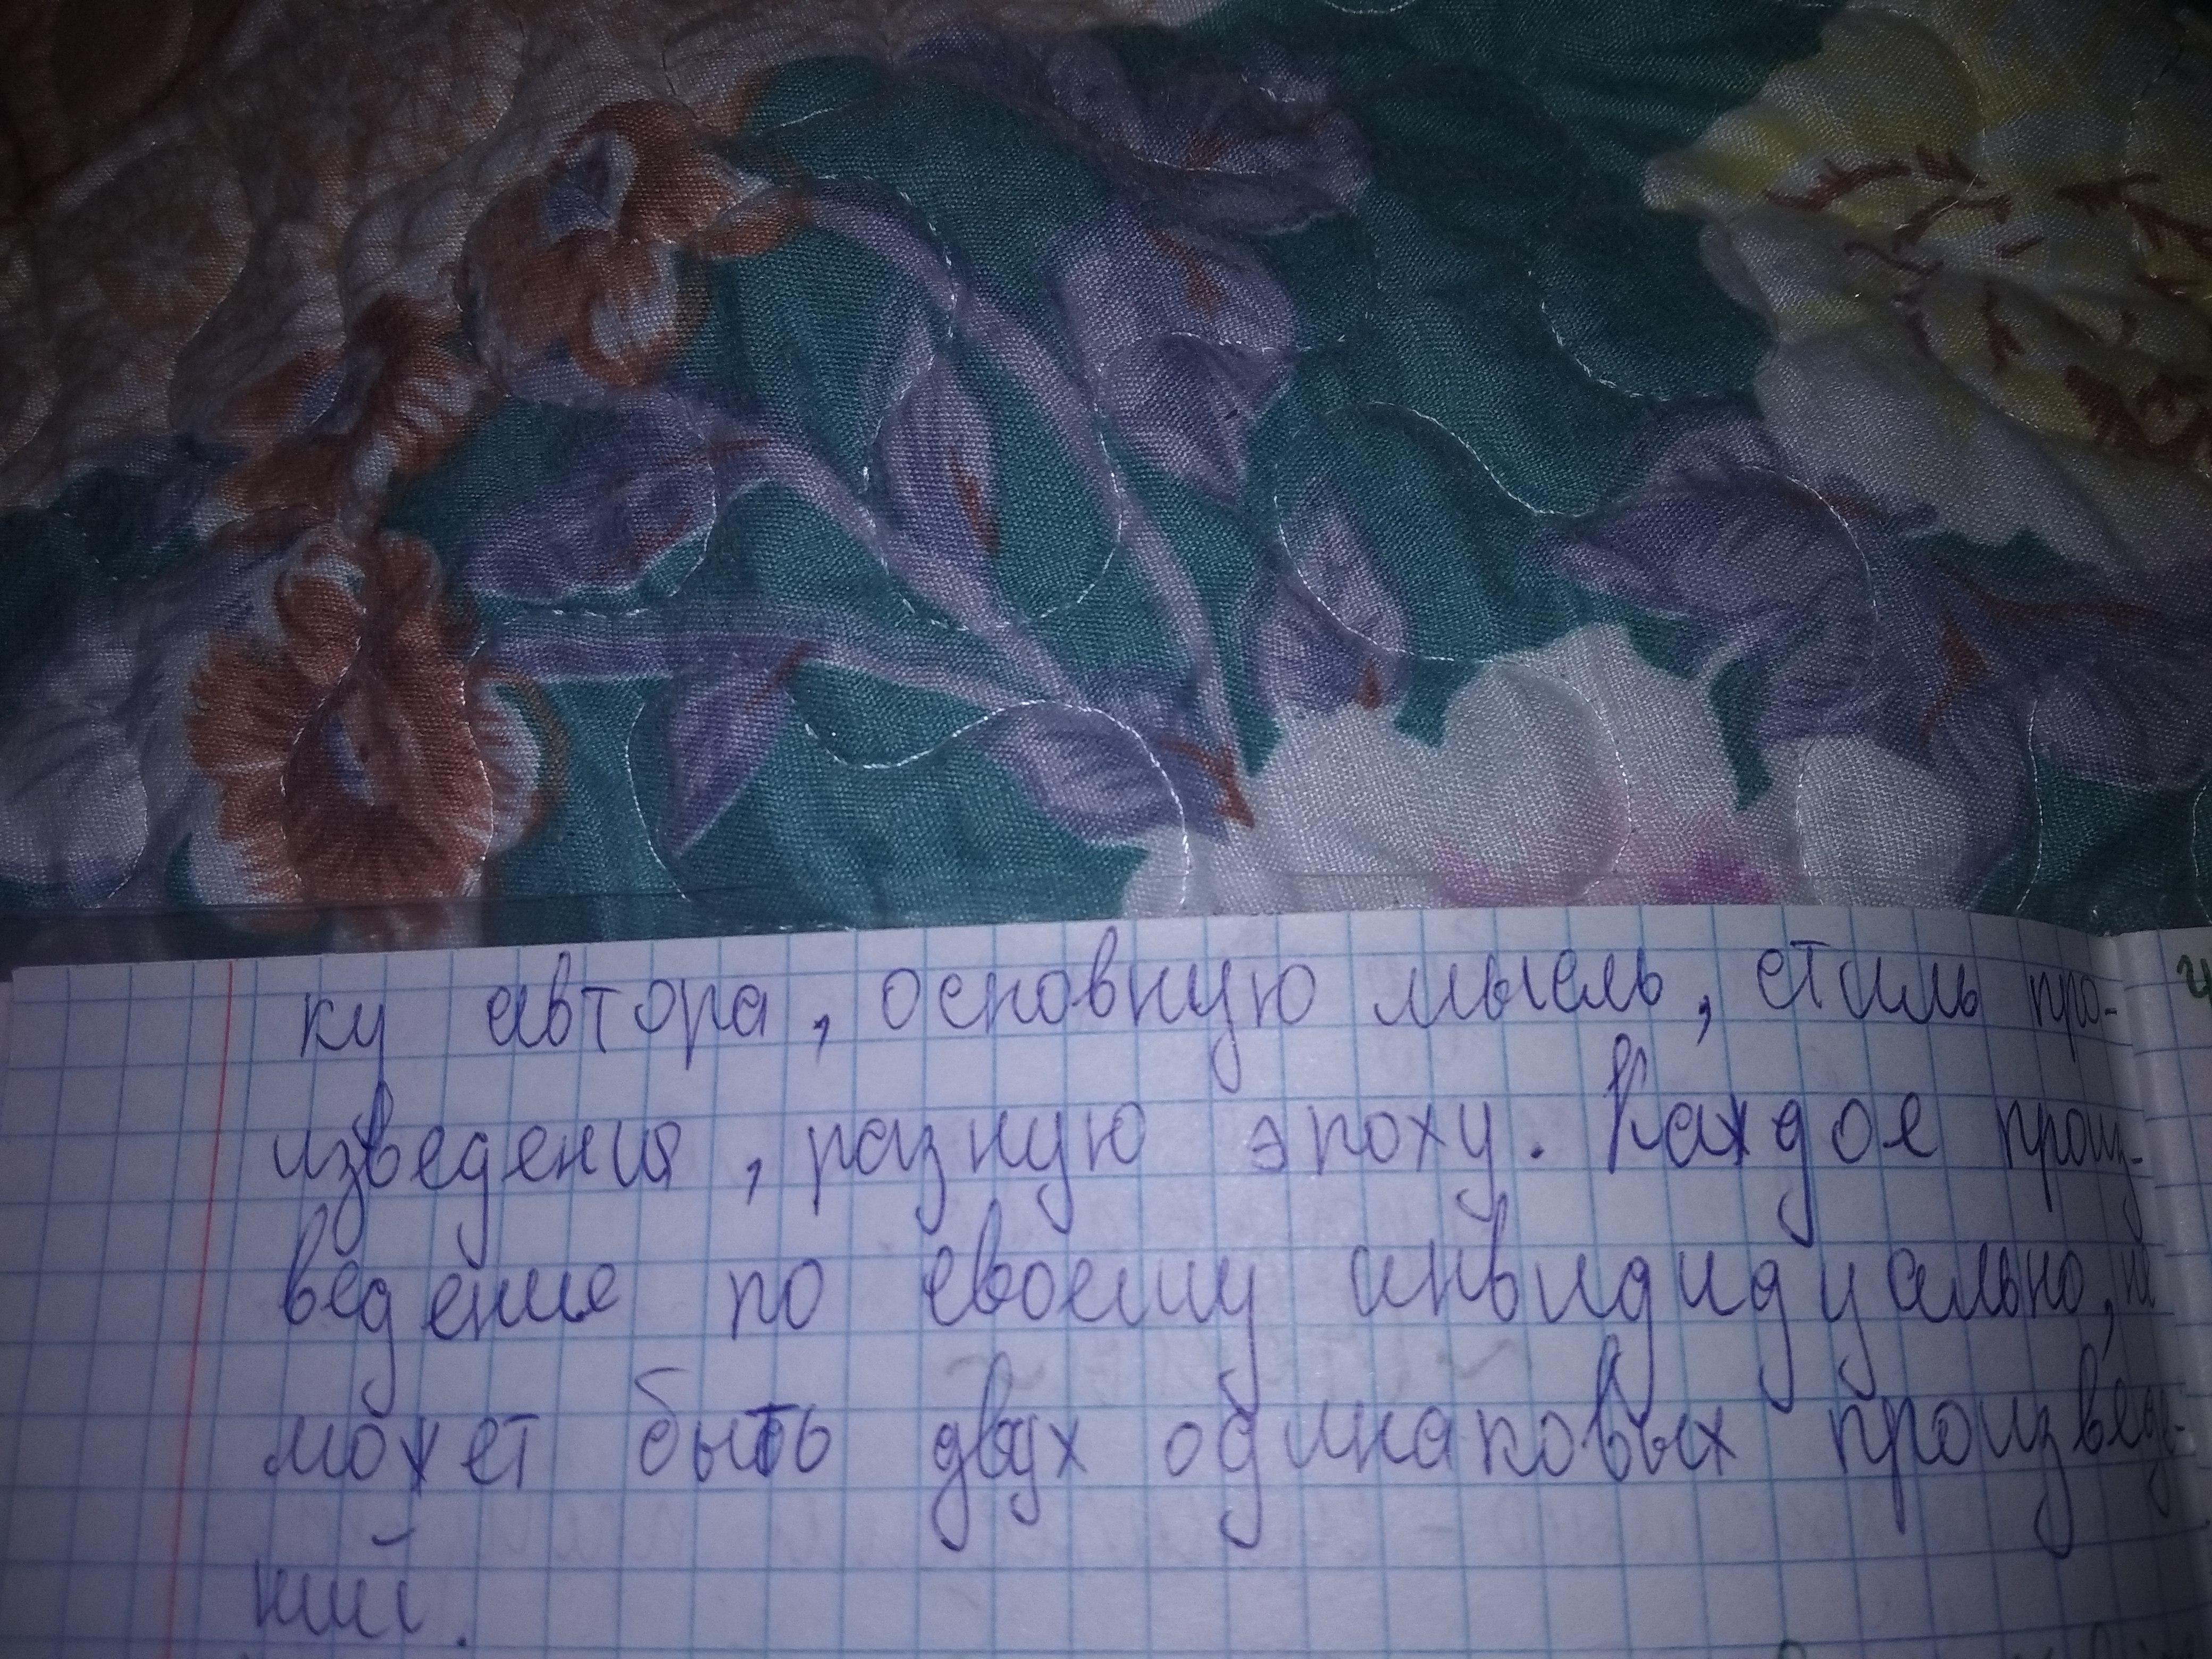 ку автора, основную мысль, стиль про-
изведения, разную эпоху. Каждое произ-
ведение по своему инвидидуально, не
может быть двух одинаковых произведе-
ний.